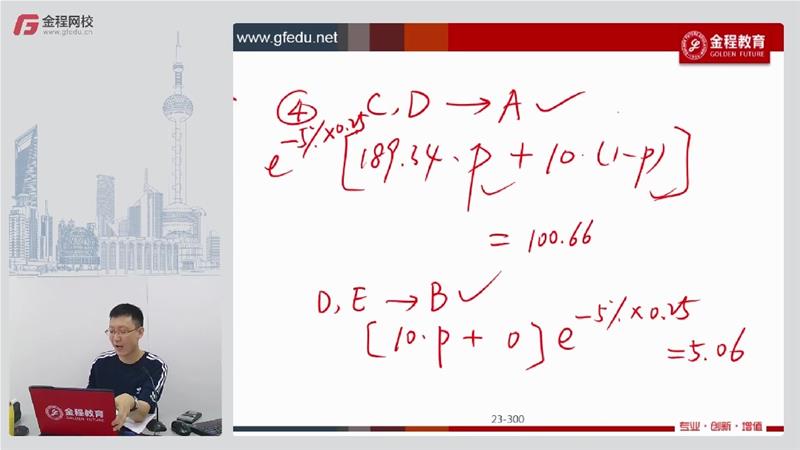 金程网校
www.gfedu.cn
www.gfedu.net
金程教育
GOLDEN FUTURE
④ C,D → A ✓
e^{-5%×0.25} [189.34·p + 10·(1-p)]
= 100.66
D,E → B ✓
[10·p + 0] e^{-5%×0.25}
= 5.06
金程教育
23-300
专业·创新·增值